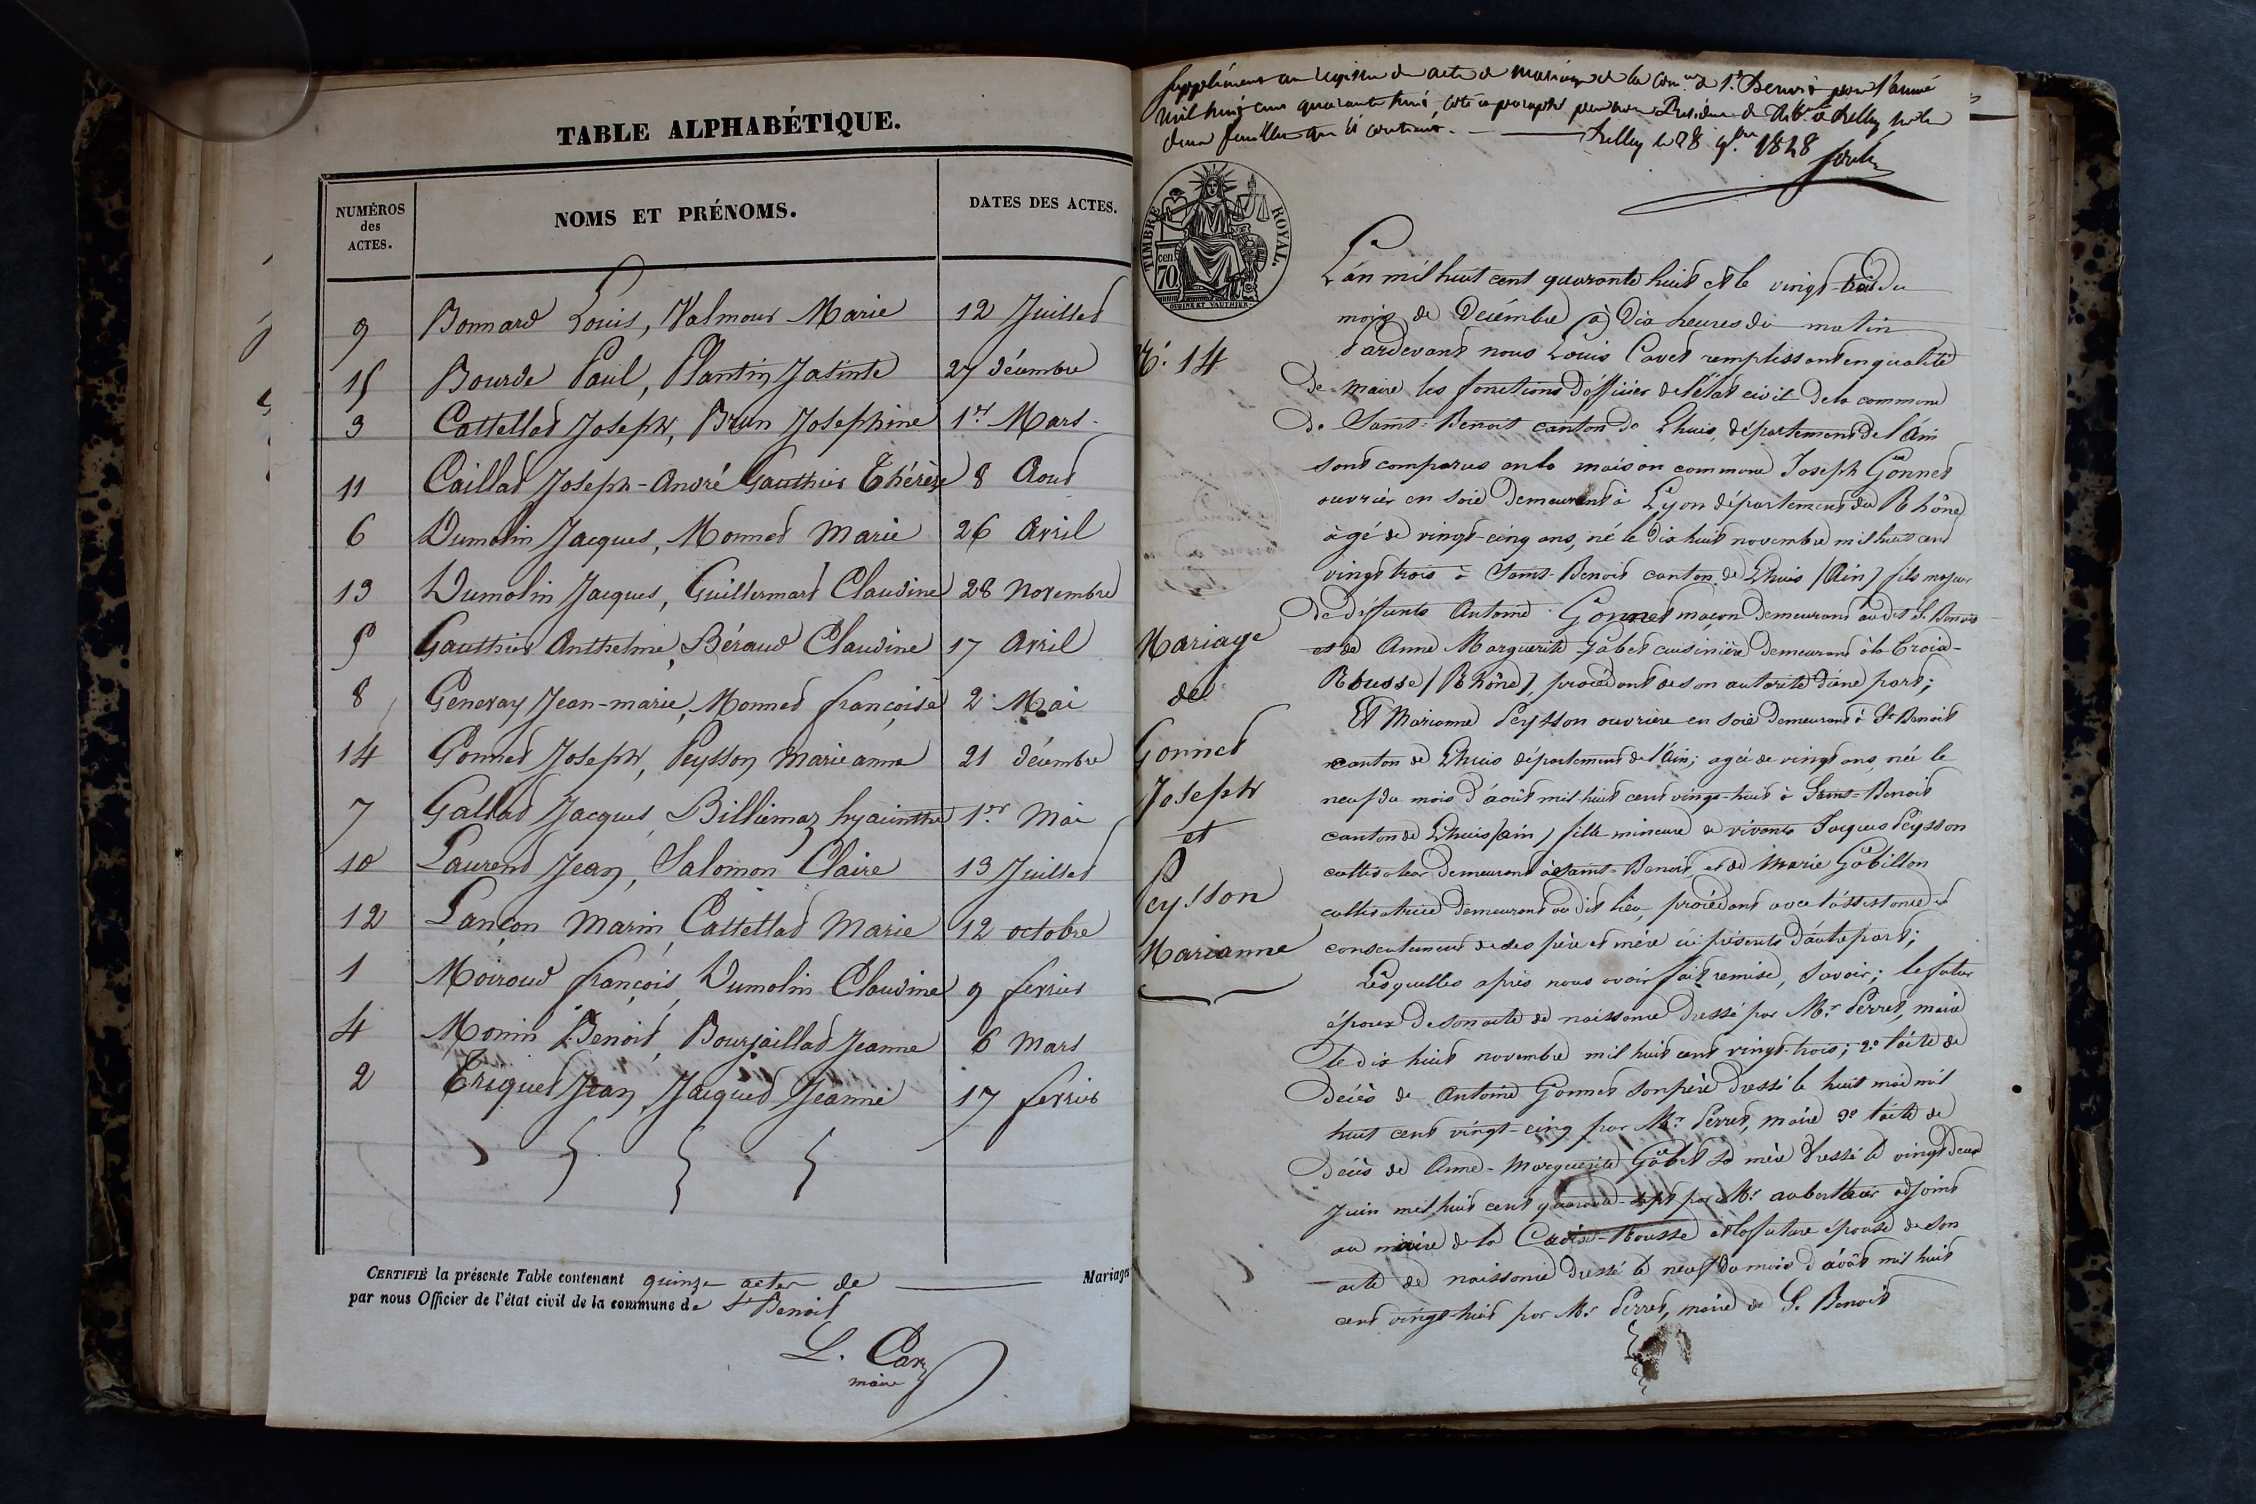 TABLE ALPHABÉTIQUE.
NUMÉROS
des
ACTES.
NOMS ET PRÉNOMS.
DATES DES ACTES.
9 Bonnard Louis, Valmour Marie 12 Juillet
15 Bourde Paul, Plantin Jasinte 27 décembre
3 Cattellad Joseph, Brun Josephine 1er Mars
11 Caillad Joseph-André Gauthier Thérèse 8 Aout
6 Dumolin Jacques, Monnet Marie 26 Avril
13 Dumolin Jacques, Guillermard Claudine 28 Novembre
5 Gauthier Anthelme, Béraud Claudine 17 Avril
8 Genevay Jean-marie, Monnet françoise 2 Mai
14 Gonnet Joseph, Peysson Marieanne 21 décembre
7 Gallad Jacques, Billiemaz hyacinthe 1er Mai
10 Laurent Jean, Salomon Claire 13 Juillet
12 Lançon Marin, Cattellad Marie 12 octobre
1 Moiroud françois, Dumolin Claudine 9 fevrier
4 Monin Benoit, Bourjaillad Jeanne 6 Mars
2 Triquet Jean, Jacquet Jeanne 17 fevrier
CERTIFIÉ la présente Table contenant quinze actes de Mariages
par nous Officier de l'état civil de la commune de St Benoit
L. Cavet
maire
Supplément au registre des actes de mariage de la Comne de St. Benoit pour l'année
mil huit cent quarante huit coté et paraphé par nous Président du de Belley sur les
deux feuilles qu'il contient.
Belley le 28 9bre 1848
TIMBRE ROYAL.
70 cen
N.° 14
Mariage
de
Gonnet
Joseph
et
Peysson
Marianne
L'an mil huit cent quarante huit et le vingt-trois du
mois de Décembre à dix heures du matin
Pardevant nous Louis Cavet remplissant en qualité
de maire les fonctions d'officier de l'état civil de la commune
de Saint-Benoit canton de Lhuis, département de l'Ain
sont comparus en la maison commune Joseph Gonnet
ouvrier en soie demeurant à Lyon département du Rhône
âgé de vingt-cinq ans, né le dix huit novembre mil huit cent
vingt trois à Saint-Benoit canton de Lhuis (Ain) fils majeur
de deffunts Antoine Gonnet maçon demeurant au dit St Benoit
et de Anne Marguerite Gôbet cuisinière demeurant à la Croix-
Rousse (Rhône), procédant de son autorité d'une part;
Et Marianne Peysson ouvrière en soie demeurant à St Benoit
canton de Lhuis département de l'Ain; agée de vingt ans, née le
neuf du mois d'août mil huit cent vingt-huit à Saint-Benoit
canton de Lhuis (ain) fille mineure de vivants Jacques Peysson
cultivateur demeurant à Saint-Benoit, et de Marie Gôbillon
cultivatrice demeurant au dit lieu, procédant avec l'assistance et
consentement de ses père et mère ici présents d'autre part;
Lesquelles après nous avoir fait remise, savoir; le futur
époux de son acte de naissance dressé par Mr Perret, maire
le dix huit novembre mil huit cent vingt-trois; 2° l'acte de
décès de Antoine Gonnet son père dressé le huit mai mil
huit cent vingt-cinq par Mr Perret, maire 3° l'acte de
décès de Anne-Marguerite Gôbet sa mère dressé le vingt deux
Juin mil huit cent quarante-sept par Mr aubertheir adjoint
au maire de la Croix-Rousse et la future épouse de son
acte de naissance dressé le neuf du mois d'août mil huit
cent vingt-huit par Mr Perret, maire de St. Benoit